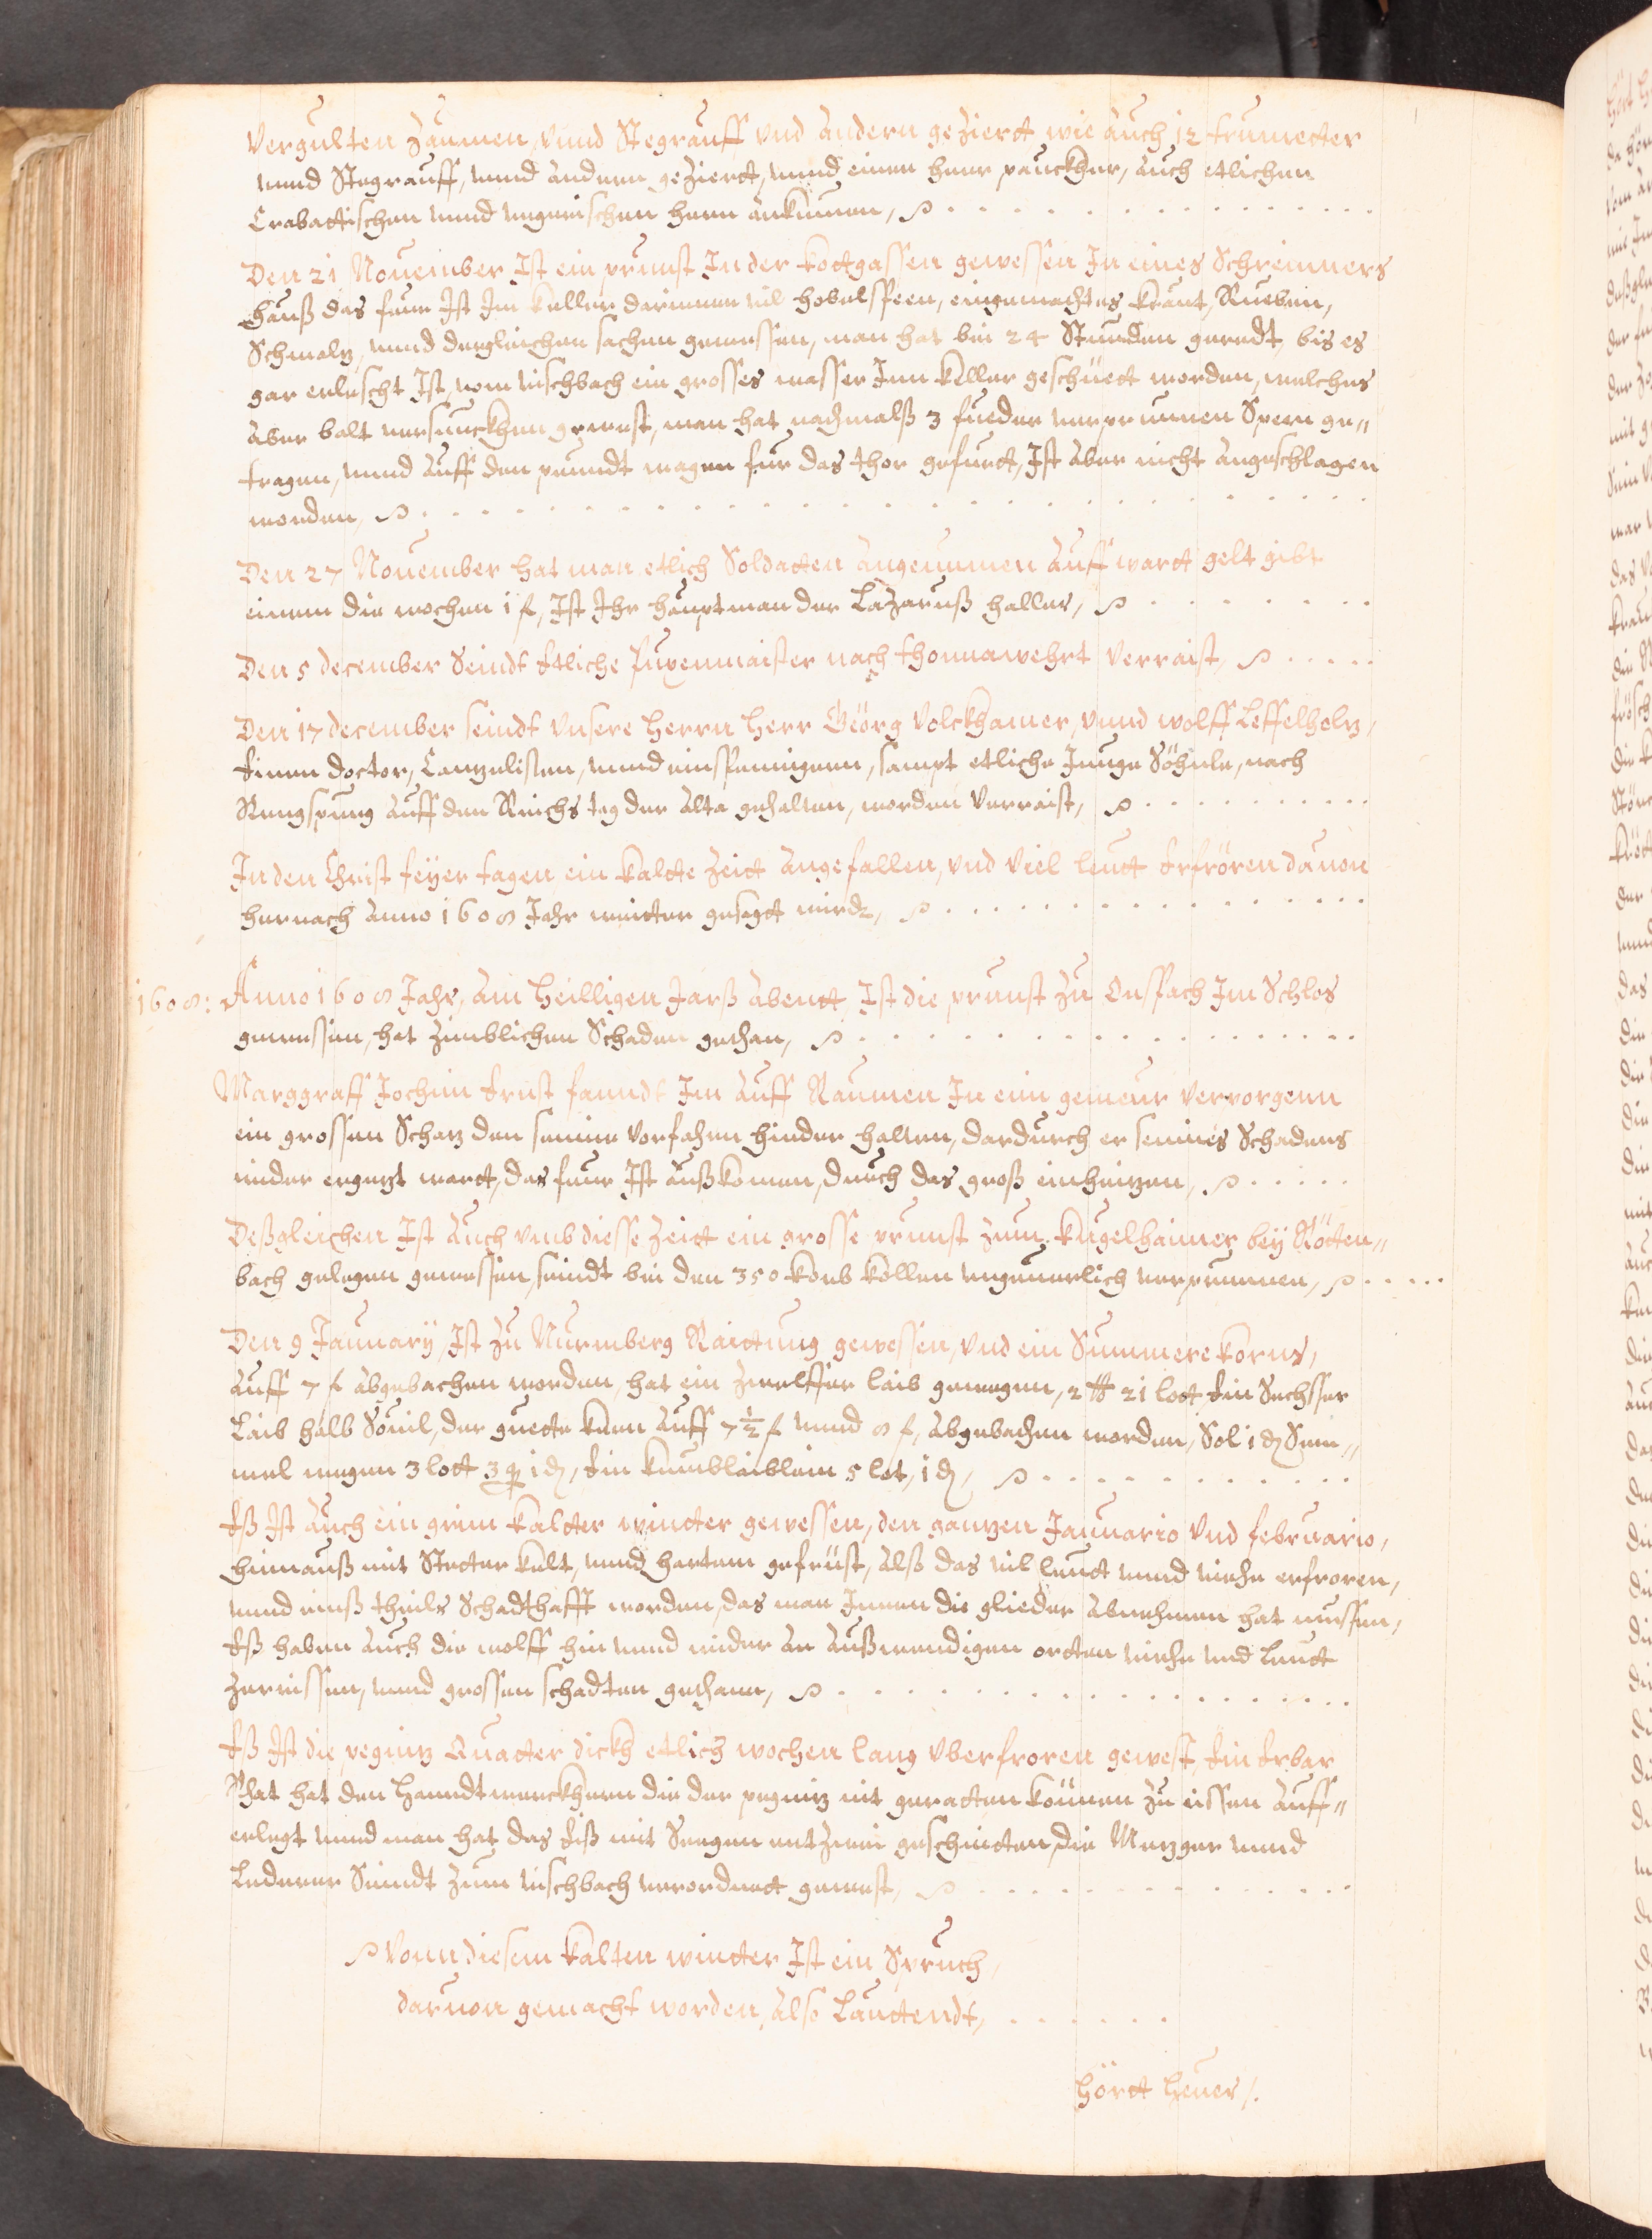 Vergulten Zäumen, vnnd Stegraüff vnd andern geziertt, wie auch 12 trumetter
vnnd Stegraüff, vnnd andern geziertt, vnnd einen heer pauckher, auch etlichen
Crabattischen vnnd vngrischen herrn ankumen,
Den 21 Nouember Ist ein prunst In der kottgassen gewessen In eines Schreinners
hauß das feur Ist Im keller darinnen vil hobelspeen, eingemachtes kraut, Rueben,
Schmalz, vnnd dergleichen sachen gewessen, man hat bei 24 Stunden geredt, bis es
gar erlescht Ist, vom vischbach ein grosses wasser Inn keller geschüett worden, welches
aber balt versunckhen gewest, man hat nachmalß 3 fueder verprunnen Speen ge„
tragen, vnnd auff den prundt wagen für das thor gefuertt, Ist aber nicht angeschlagen
worden,
Den 27 Nouember hat man etlich Soldatten angenummen auff wartt gelt gibt
einem die wochen 1 f, Ist Ihr hauptman der Lazaruß haller,
Den 5 december Seindt Etliche puxenmaister nach thonnawehrt Verraist,
Den 17 december seindt Vnsere Herrn Herr Geörg Volckhamer, vnnd wolff Leffelholz,
Einen doctor, Canzelisten, vnnd einspennigern, sampt etliche Junge Söhnle, nach
Rengspurg auff den Reichs tag der alta gehalten, worden Verraist,
In den Christ feÿer tagen ein kaltte zeitt angefallen, vnd Viel leutt Erfrören dauon
hernach Anno 1608 Jahr weitter gesagt wirdt,
1608: Anno 1608 Jahr, Am Heilligen Jarß abentt Ist die prunst zu Onspach Im Schlos
gewessen, hat zimblichen Schaden gethan,
Marggraff Jochim Ernst fanndt Im auff Raumen In eim gemeur Verporgenn
ein grossen Schaz den seinne Vorfahen hinder halten, dardurch er seinnes Schadens
wider ergezt wartt, das feur Ist außkomen, durch das groß einheizen,
Deßgleichen Ist auch vmb diesse Zeitt ein grosse prunst zum kugelhaimer beÿ Rötten„
bach gelegen gewessen, seindt bei den 350 korb kollen vngeuerlich verprunnen,
Den 9 Januarÿ, Ist zu Nürmberg Raittung gewessen, vnd ein Summere korns,
auff 7 f abgebachen worden, hat ein zwelffer laib gewegen, 2 ℔ 21 lott Ein Sechsser
Laib halb Souil, der guette kern auff 7½ f vnnd 8 f, abgebachen worden, Sol 1 ₰ Sem„
mel wegen 3 lott 3 q 1 ₰, Ein kumblaiblein 5 lot, 1 ₰,
Eß Ist auch ein grim kaltter wintter gewessen, den ganzen Januario vnd februario,
hinnauß mit Stetter kelt, vnnd hartem gefrüst, alß das vil leutt vnnd viehe erfroren,
vnnd eins theils Schadthafft worden, das man Innen die glieder abnehmen hat müssen,
Eß haben auch die wolff hin vnnd wider an außwendigen ortten viehe vnd leutt
zerrissen, vnnd grossen schadten gethann,
Eß Ist die pegniz Quatter dickh etlich wochen lang vberfroren gewest, Ein Erbar
Rhat hat den Handtwerckhern die der pegniz nit geratten können zu eissen auff„
erlegt vnnd man hat das Eiß mit Seegen entzwei geschnitten, die Mezger vnnd
Lederer Seindt zum vischbach verordnett gewest,
Vonn diesem kalten wintter Ist ein Spruch,
daruon gemacht worden, also Lauttendt,
Hörtt Heuer /.